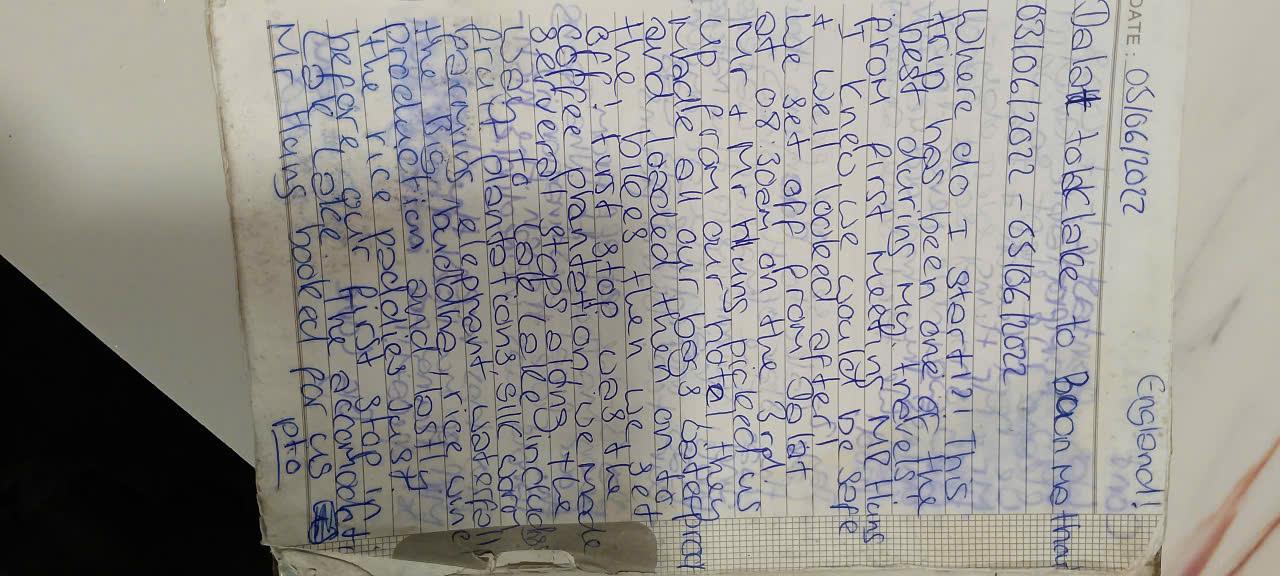 England!
DATE: 05/06/2022
Dalat to Lak Lake to Buon Me Thuot
03/06/2022 - 05/06/2022
Where do I start?! This
trip has been one of the
best during my travels!
From first meeting Mr Hung
I knew we would be safe
+ well looked after!
We set off from Dalat
at 08:30am on the 3rd!
Mr + Mr Hung picked us
up from our hotel they
Made all our bags waterproof
and loaded then on to
the bikes then we set
off! Our first stop was the
coffee plantation, we made
several stops along the
way to Lak Lake including
fruit plantations, silk worm
farming, elephant waterfall
the Big Buddha, rice wine
production and lastly
the rice paddies
before our first stop in
Lak Lake. The accomodation
Mr Hung booked for us
pto